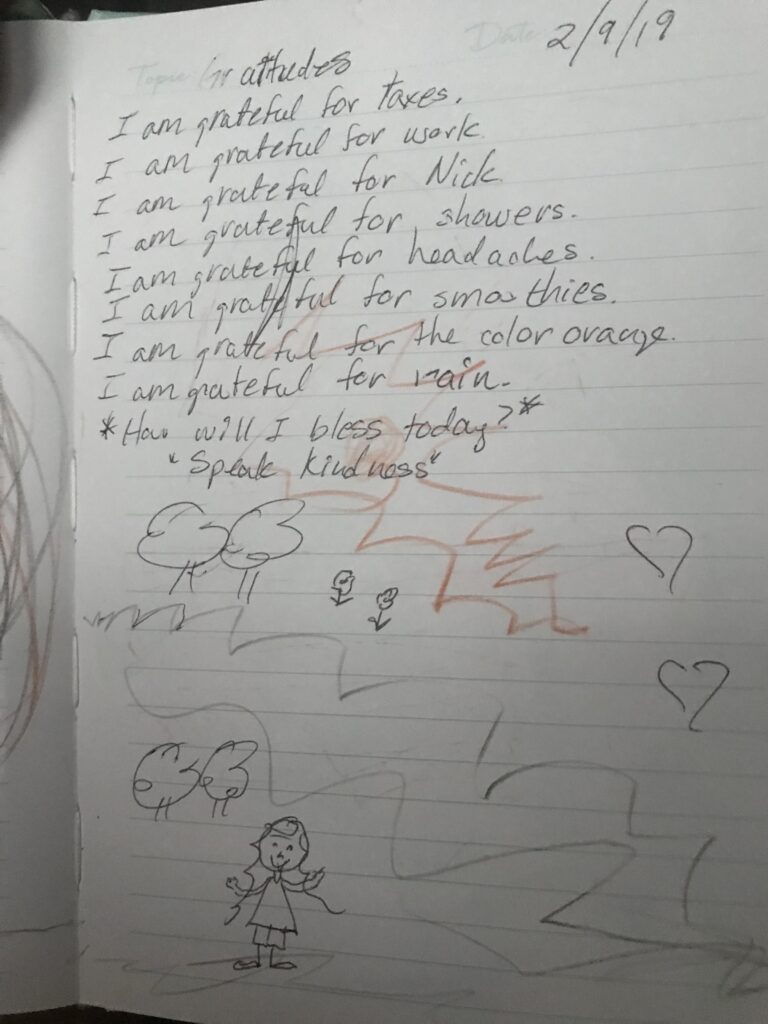 Date 2/9/19
Topic Gratitudes
I am grateful for taxes.
I am grateful for work.
I am grateful for Nick.
I am grateful for showers.
I am grateful for headaches.
I am grateful for smoothies.
I am grateful for the color orange.
I am grateful for rain.
*How will I bless today?*
"Speak kindness"